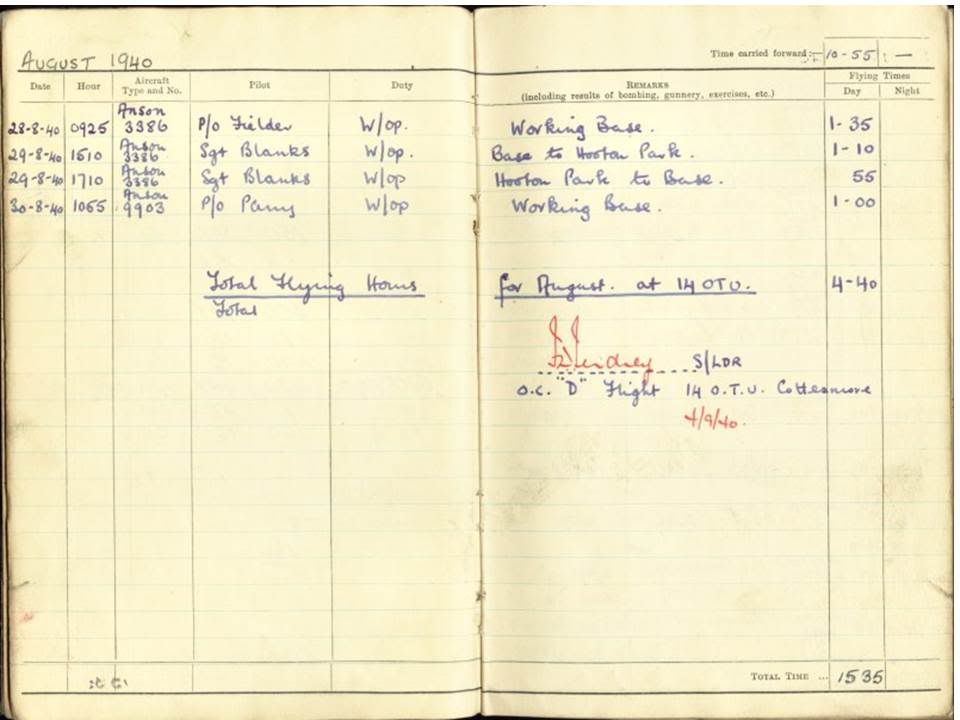 AUGUST 1940
Time carried forward:— 10-55 —
Date Hour Aircraft Type and No. Pilot Duty REMARKS (including results of bombing, gunnery, exercises, etc.) Flying Times Day Night
28-8-40 0925 Anson 3386 P/O Fielder W/op. Working Base. 1-35
29-8-40 1510 Anson 3386 Sgt Blanks W/op. Base to Hooton Park. 1-10
29-8-40 1710 Anson 3386 Sgt Blanks W/op Hooton Park to Base. 55
30-8-40 1055 Anson 9903 P/O W/op Working Base. 1-00
Total Flying Hours for August. at 14 OTU. 4-40
Total
S/LDR
O.C. "D" Flight 14 O.T.U. Cottesmore
4/9/40.
TOTAL TIME ... 1535